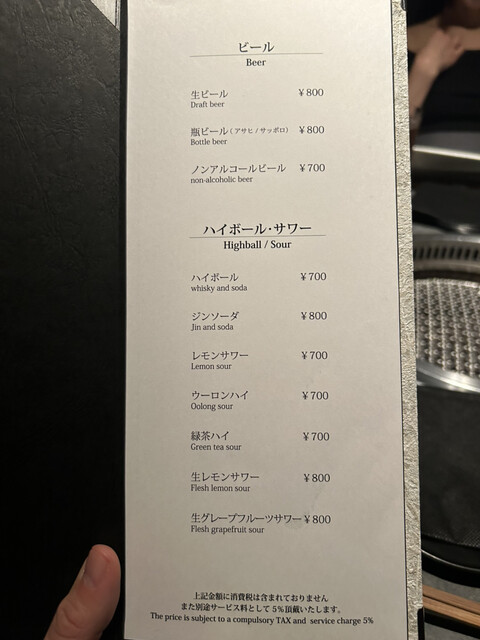 ビール
Beer
生ビール ¥800
Draft beer
瓶ビール(アサヒ/サッポロ) ¥800
Bottle beer
ノンアルコールビール ¥700
non-alcoholic beer
ハイボール・サワー
Highball / Sour
ハイボール ¥700
whisky and soda
ジンソーダ ¥800
Jin and soda
レモンサワー ¥700
Lemon sour
ウーロンハイ ¥700
Oolong sour
緑茶ハイ ¥700
Green tea sour
生レモンサワー ¥800
Flesh lemon sour
生グレープフルーツサワー ¥800
Flesh grapefruit sour
上記金額に消費税は含まれておりません
また別途サービス料として5%頂戴いたします。
The price is subject to a compulsory TAX and service charge 5%